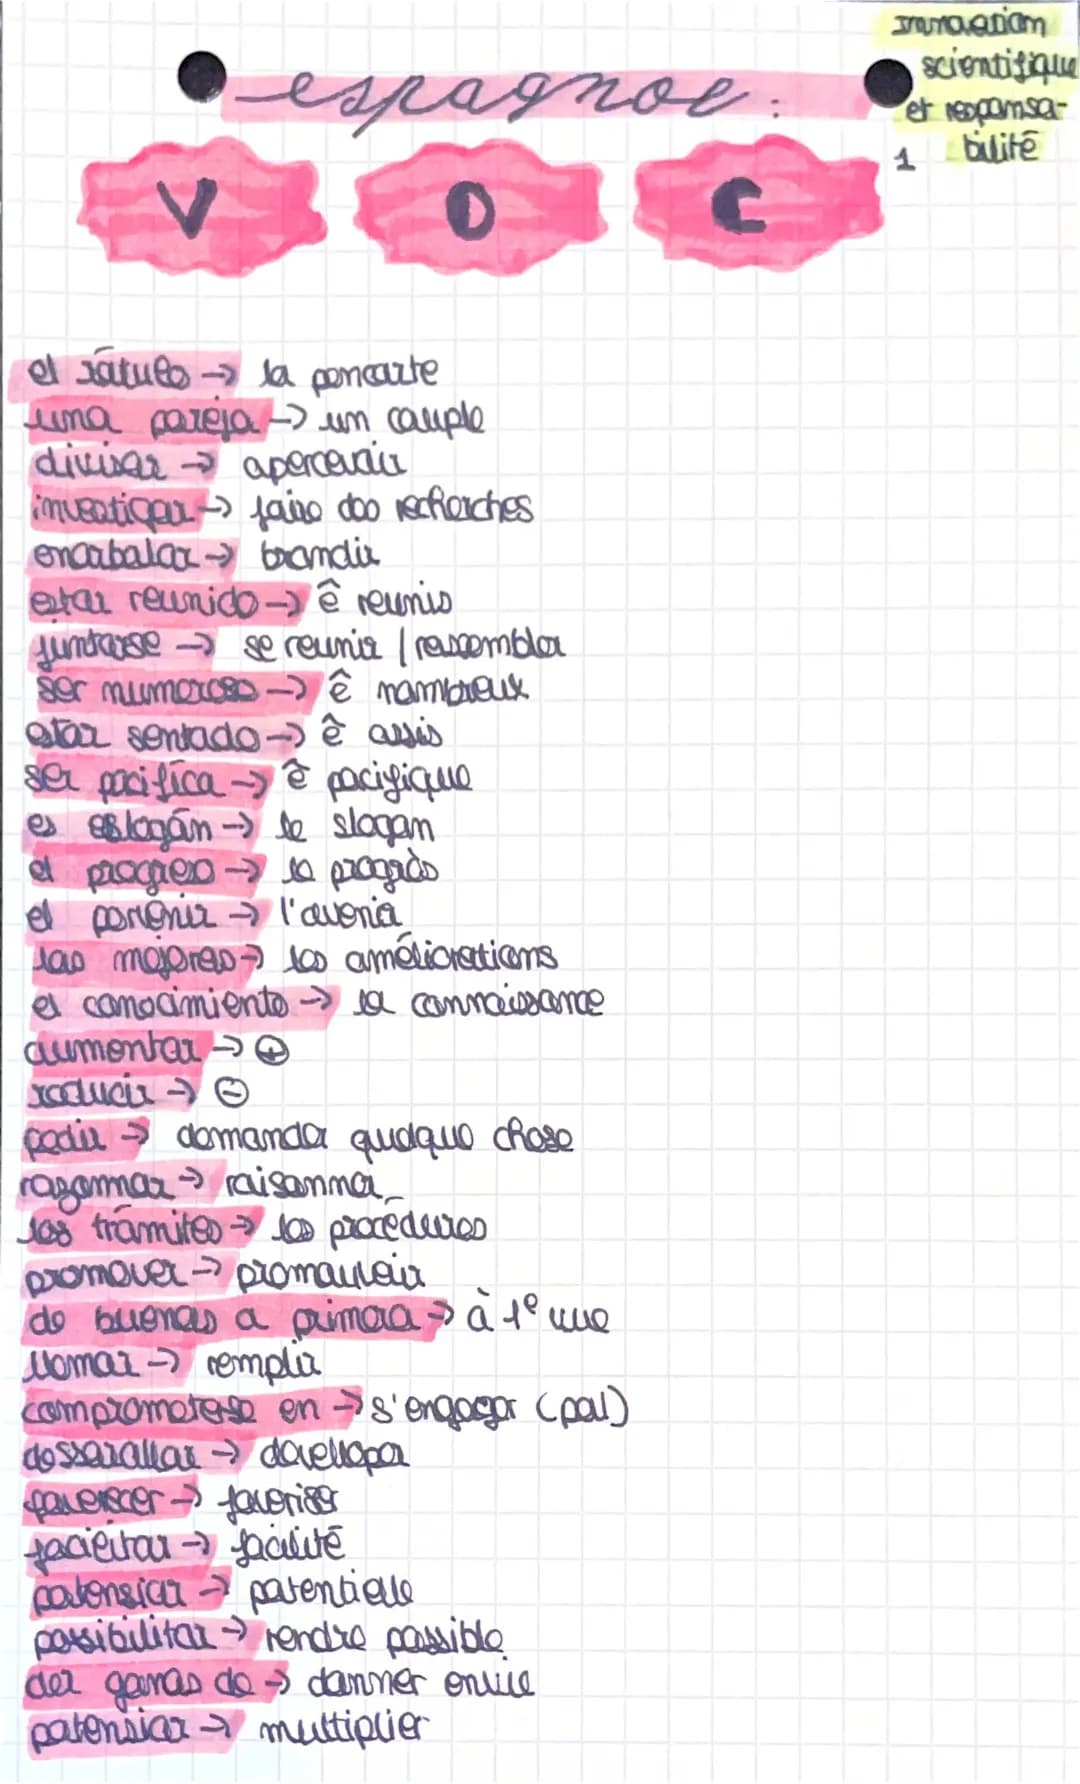 Innovation
scientifique
et responsa-
bilité
1
espagnol :
V O C
el rátulo → la pancarte
una pareja → un couple
divisar → apercevoir
investigar → faire des recherches
enarbalar → brandir
estar reunido → ê reunis
juntarse → se reunir / rassembler
ser numeroso → ê nombreux
estar sentado → ê assis
ser pacifica → ê pacifique
es eslogán → le slogan
el progreso → le progrès
el porvenir → l'avenir
las mejoras → les améliorations
el conocimiento → la connaissance
aumentar → ⊕
reducir → ⊖
pedir → demander quelque chose
razonnar → raisonner
los trámites → les procédures
promover → promouvoir
de buenas a primera → à 1e vue
llomar → remplir
comprometerse en → s'engager (pou)
dessarollar → développer
favorecer → favoriser
facilitar → facilité
potensiar → potentielle
possibilitar → rendre possible
der ganas de → donner envie
potensiar → multiplier